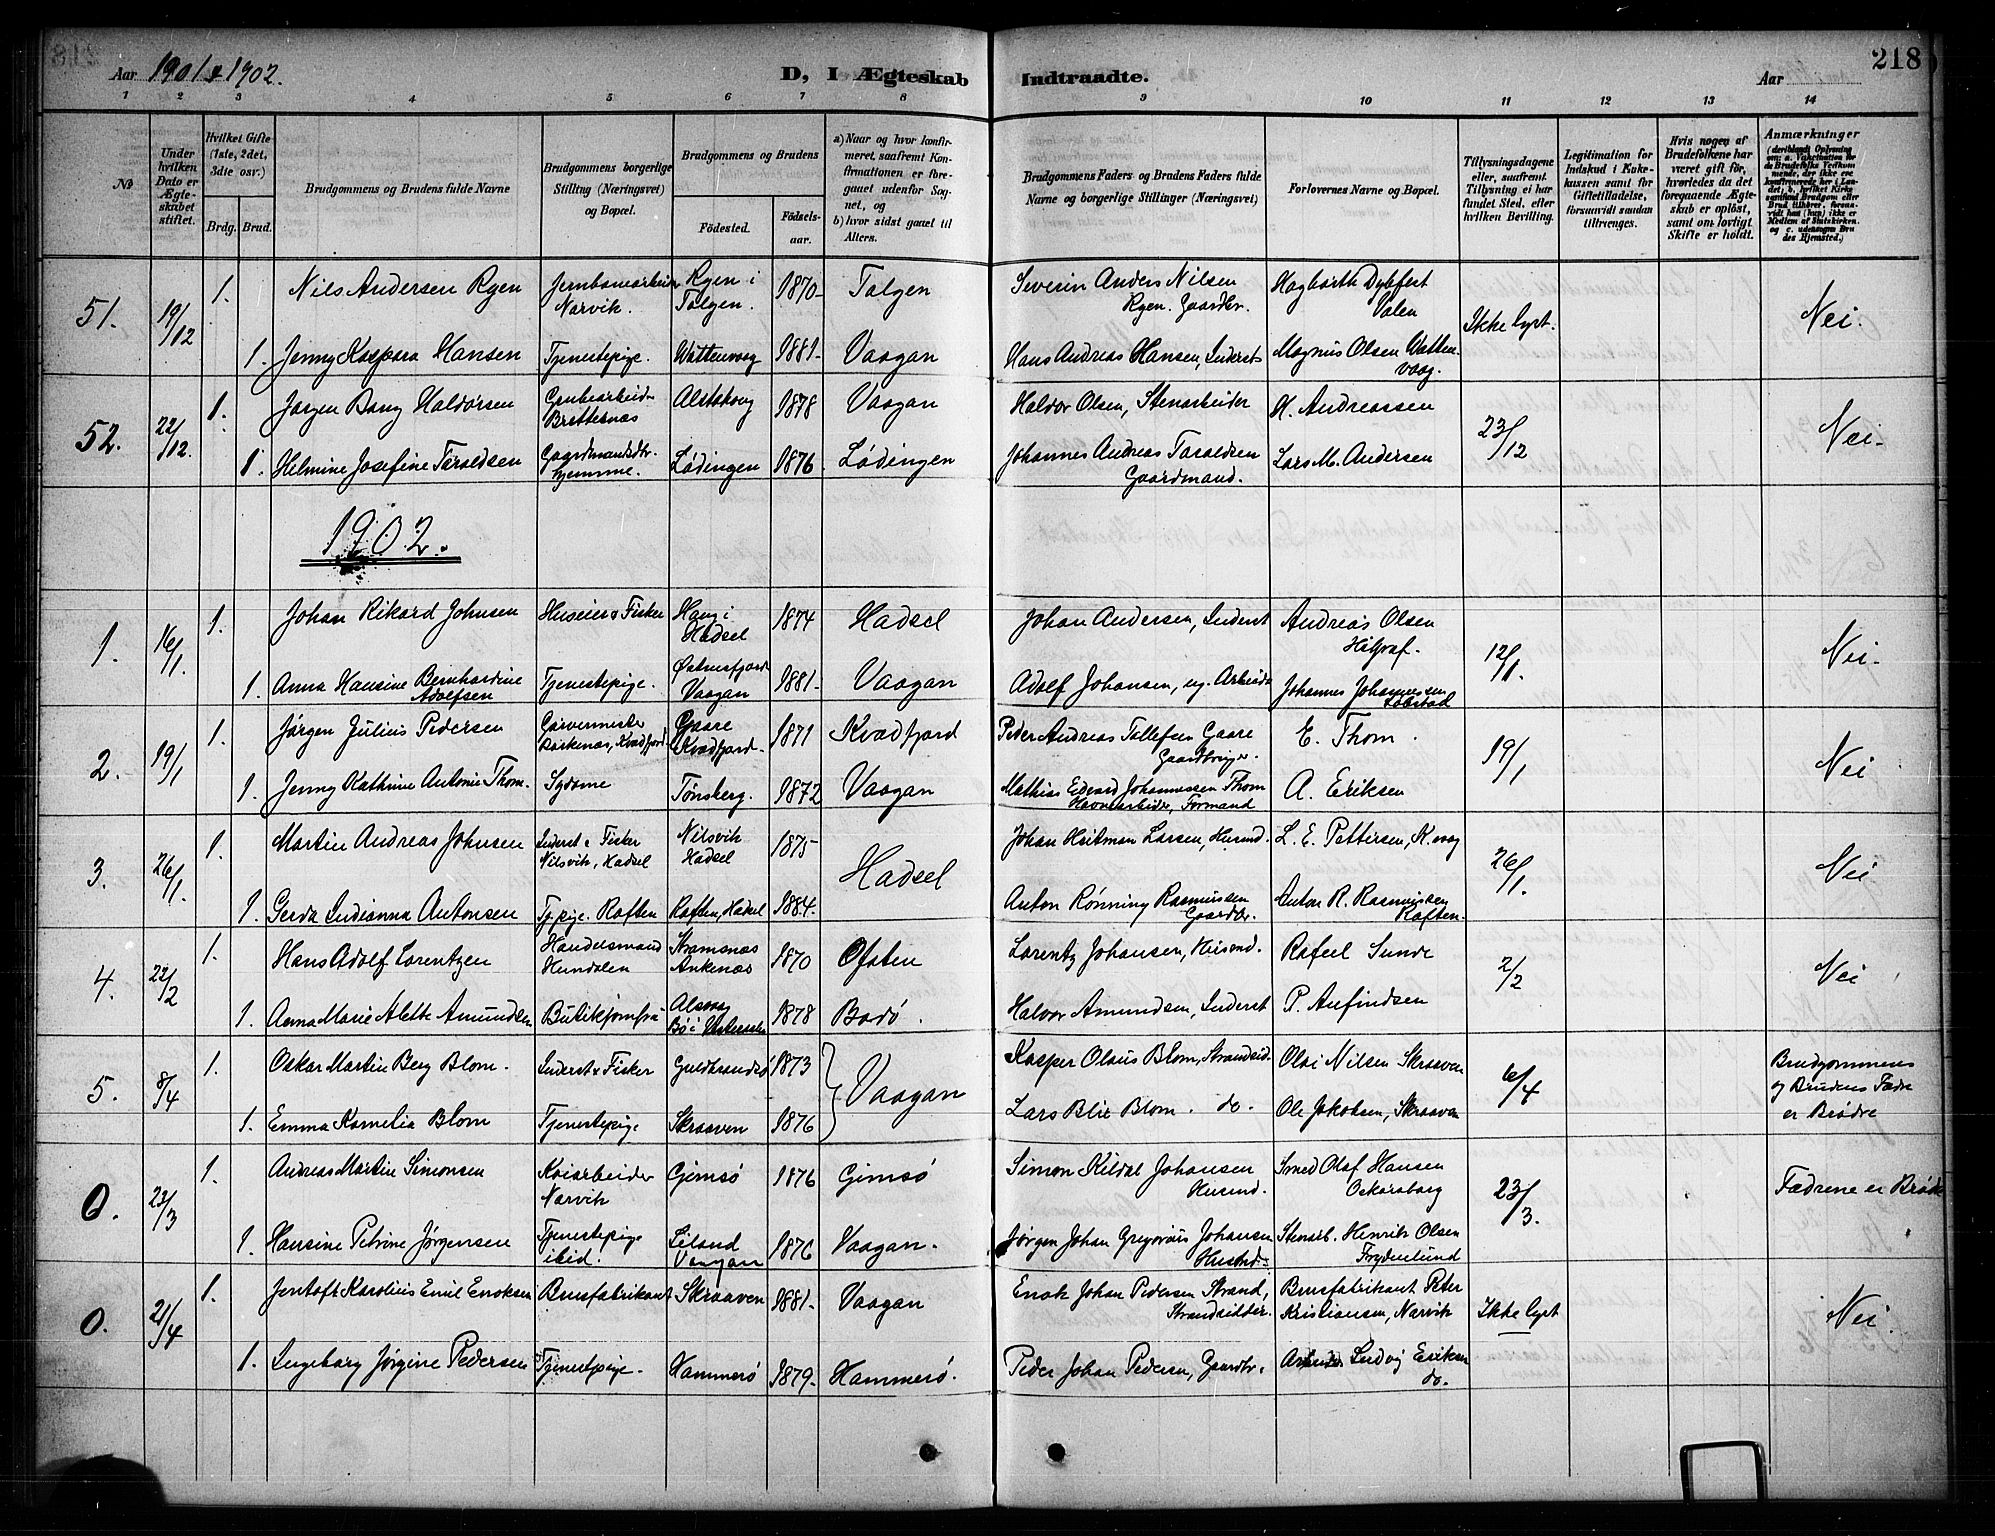 Aar 1901 & 1902.
D, I Ægteskab Indtraadte.
Aar
218
1 2 3 4 5 6 7 8 9 10 11 12 13 14
№
Under hvilken Dato er Ægteskabet stiftet.
Hvilket Gifte (1ste, 2det, 3die osv.)
Brdg. Brud.
Brudgommens og Brudens fulde Navne
Brudgommens borgerlige Stilling (Næringsvei) og Bopæl.
Brudgommens og Brudens
Födested.
Födselsaar.
a) Naar og hvor konfirmeret, saafremt Konfirmationen er foregaaet udenfor Sognet, og
b) hvor sidst gaaet til Alters.
Brudgommens Faders og Brudens Faders fulde Navne og borgerlige Stillinger (Næringsvei)
Forlovernes Navne og Bopæl.
Tillysningsdagene eller, saafremt Tillysning ei har fundet Sted, efter hvilken Bevilling.
Legitimation for Indskud i Enkekassen samt for Giftetilladelse, forsaavidt saadan tiltrænges.
Hvis nogen af Brudefolkene har været gift för, hvorledes da det foregaaende Ægteskab er oplöst, samt om lovligt Skifte er holdt.
Anmærkninger
51. 19/12 1. Nils Andersen Ryen Jernbanearbeider Narvik. Ryen i Tolgen. 1870 Tolgen Severin Anders Nilsen Ryen. Gaardbr. Hagbarth Dybfest Valen Ikke lyst. Nei.
1. Jenny Kaspara Hansen Tjenestepige. Wattenvaag 1881 Vaagan Hans Andreas Hansen, Inderst Magnus Olsen Wattenvaag.
52. 22/12. 1. Jørgen Bang Haldorsen Grubearbeider Brettesnæs Alstahoug 1878 Vaagan Haldor Olsen, Stenarbeider H. Andreassen 23/12 Nei.
1. Helmine Josefine Taraldsen Gaardmandsdtr. hjemme. Lødingen 1876. Lødingen Johannes Andreas Taraldsen Gaardmand. Lars M. Andersen
1902.
1. 16/1 1. Johan Rikard Johnsen Huseier & Fisker Haug i Hadsel 1874 Hadsel Johan Andersen, Inderst Andreas Olsen 12/1. Nei.
1. Anna Hansine Bernhardine Adolfsen Tjenestepige. Østnesfjord Vaagan 1881 Vaagan Adolf Johansen, ug. Arbeider Johannes Johannessen
2. 19/1 1. Jørgen Julius Pedersen Garvermester Borkenæs, Kvædfjord Gaare Kvædfjord 1871 Kvædfjord Peder Andreas Tollefsen Gaare Gaardbruger. E. Thom. 19/1 Nei
1. Jenny Kathrine Antonie Thom. Sydame Tønsberg. 1872 Vaagan Mathias Edvard Johannessen Thom Havnearbeider, Formand A. Eriksen
3. 26/1. 1. Martin Andreas Johnsen Inderst & Fisker Nilsvik, Hadsel Nilsvik Hadsel 1875 Hadsel Johan Heitman Larsen, Husmd. L. E. Pettersen, K.vaag 26/1. Nei
1. Gerda Indianna Antonsen Tj.pige. Raften Raften, Hadsel 1884. Anton Rønning Rasmussen Gaardbr. Anton R. Rasmussen Raften
4. 22/2 1. Hans Adolf Lorentzen Handelsmand Hundalen Stramsnæs Ankenæs 1870 Ofoten Lorentz Johansen, Husmd. Rafael Sunde 2/2 Nei
1. Anna Marie Alette Amundsen Butikjomfru Alsvaag Bø i Vesteraalen 1878 Bodø. Halvor Amundsen, Inderst P. Anfindsen
5. 8/4 1. Oskar Martin Berg Blom. Inderst & Fisker Guldbrandsø 1873 Vaagan Kasper Olaus Blom, Strandsid. Olai Nilsen Skraaven 6/4 Brudgommens og Brudens Fædre er Brødre
1. Emma Kornelia Blom Tjenestepige Skraaven 1876 Lars Blix Blom. do. Ole Jakobsen, Skraaven
0. 23/3 1. Andreas Martin Simonsen Kaiarbeider Narvik Gimsø 1876 Gimsø Simon Kildal Johansen Husmd. Smed Olaf Hansen Oskarsborg 23/3. Fædrene er Brødre
1. Hansine Petrine Jørgensen Tjenestepige ibid. Liland Vaagan 1876 Vaagan. Jørgen Johan Gregorius Johansen Husmd. Stenarb. Henrik Olsen Frydenlund
0. 21/4 1. Jentoft Karolius Emil Enoksen Brusfabrikant Skraaven 1881 Vaagan Enok Johan Pedersen Strand, Strandsidder. Brusfabrikant Peter Kristiansen, Narvik Ikke lyst Nei.
1. Ingeborg Jørgine Pedersen Tjenestpige. Hammerø 1879. Hammerø. Peder Johan Pedersen, Gaardbr. Ludvig Eriksen do.